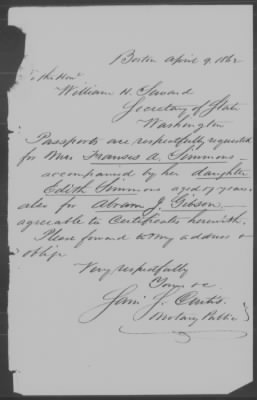 Boston April 9, 1862
To the Hon'l
William H. Seward
Secretary of State
Washington
Passports are respectfully requested
for Mrs Frances A. Simmons
accompanied by her daughter
Edith Simmons aged 17 years.
also for Abram J. Gibson
agreeable to Certificates herewith.
Please forward to my address &
oblige
Very respectfully
Yours &c
Sam'l J. Curtis.
Notary Public